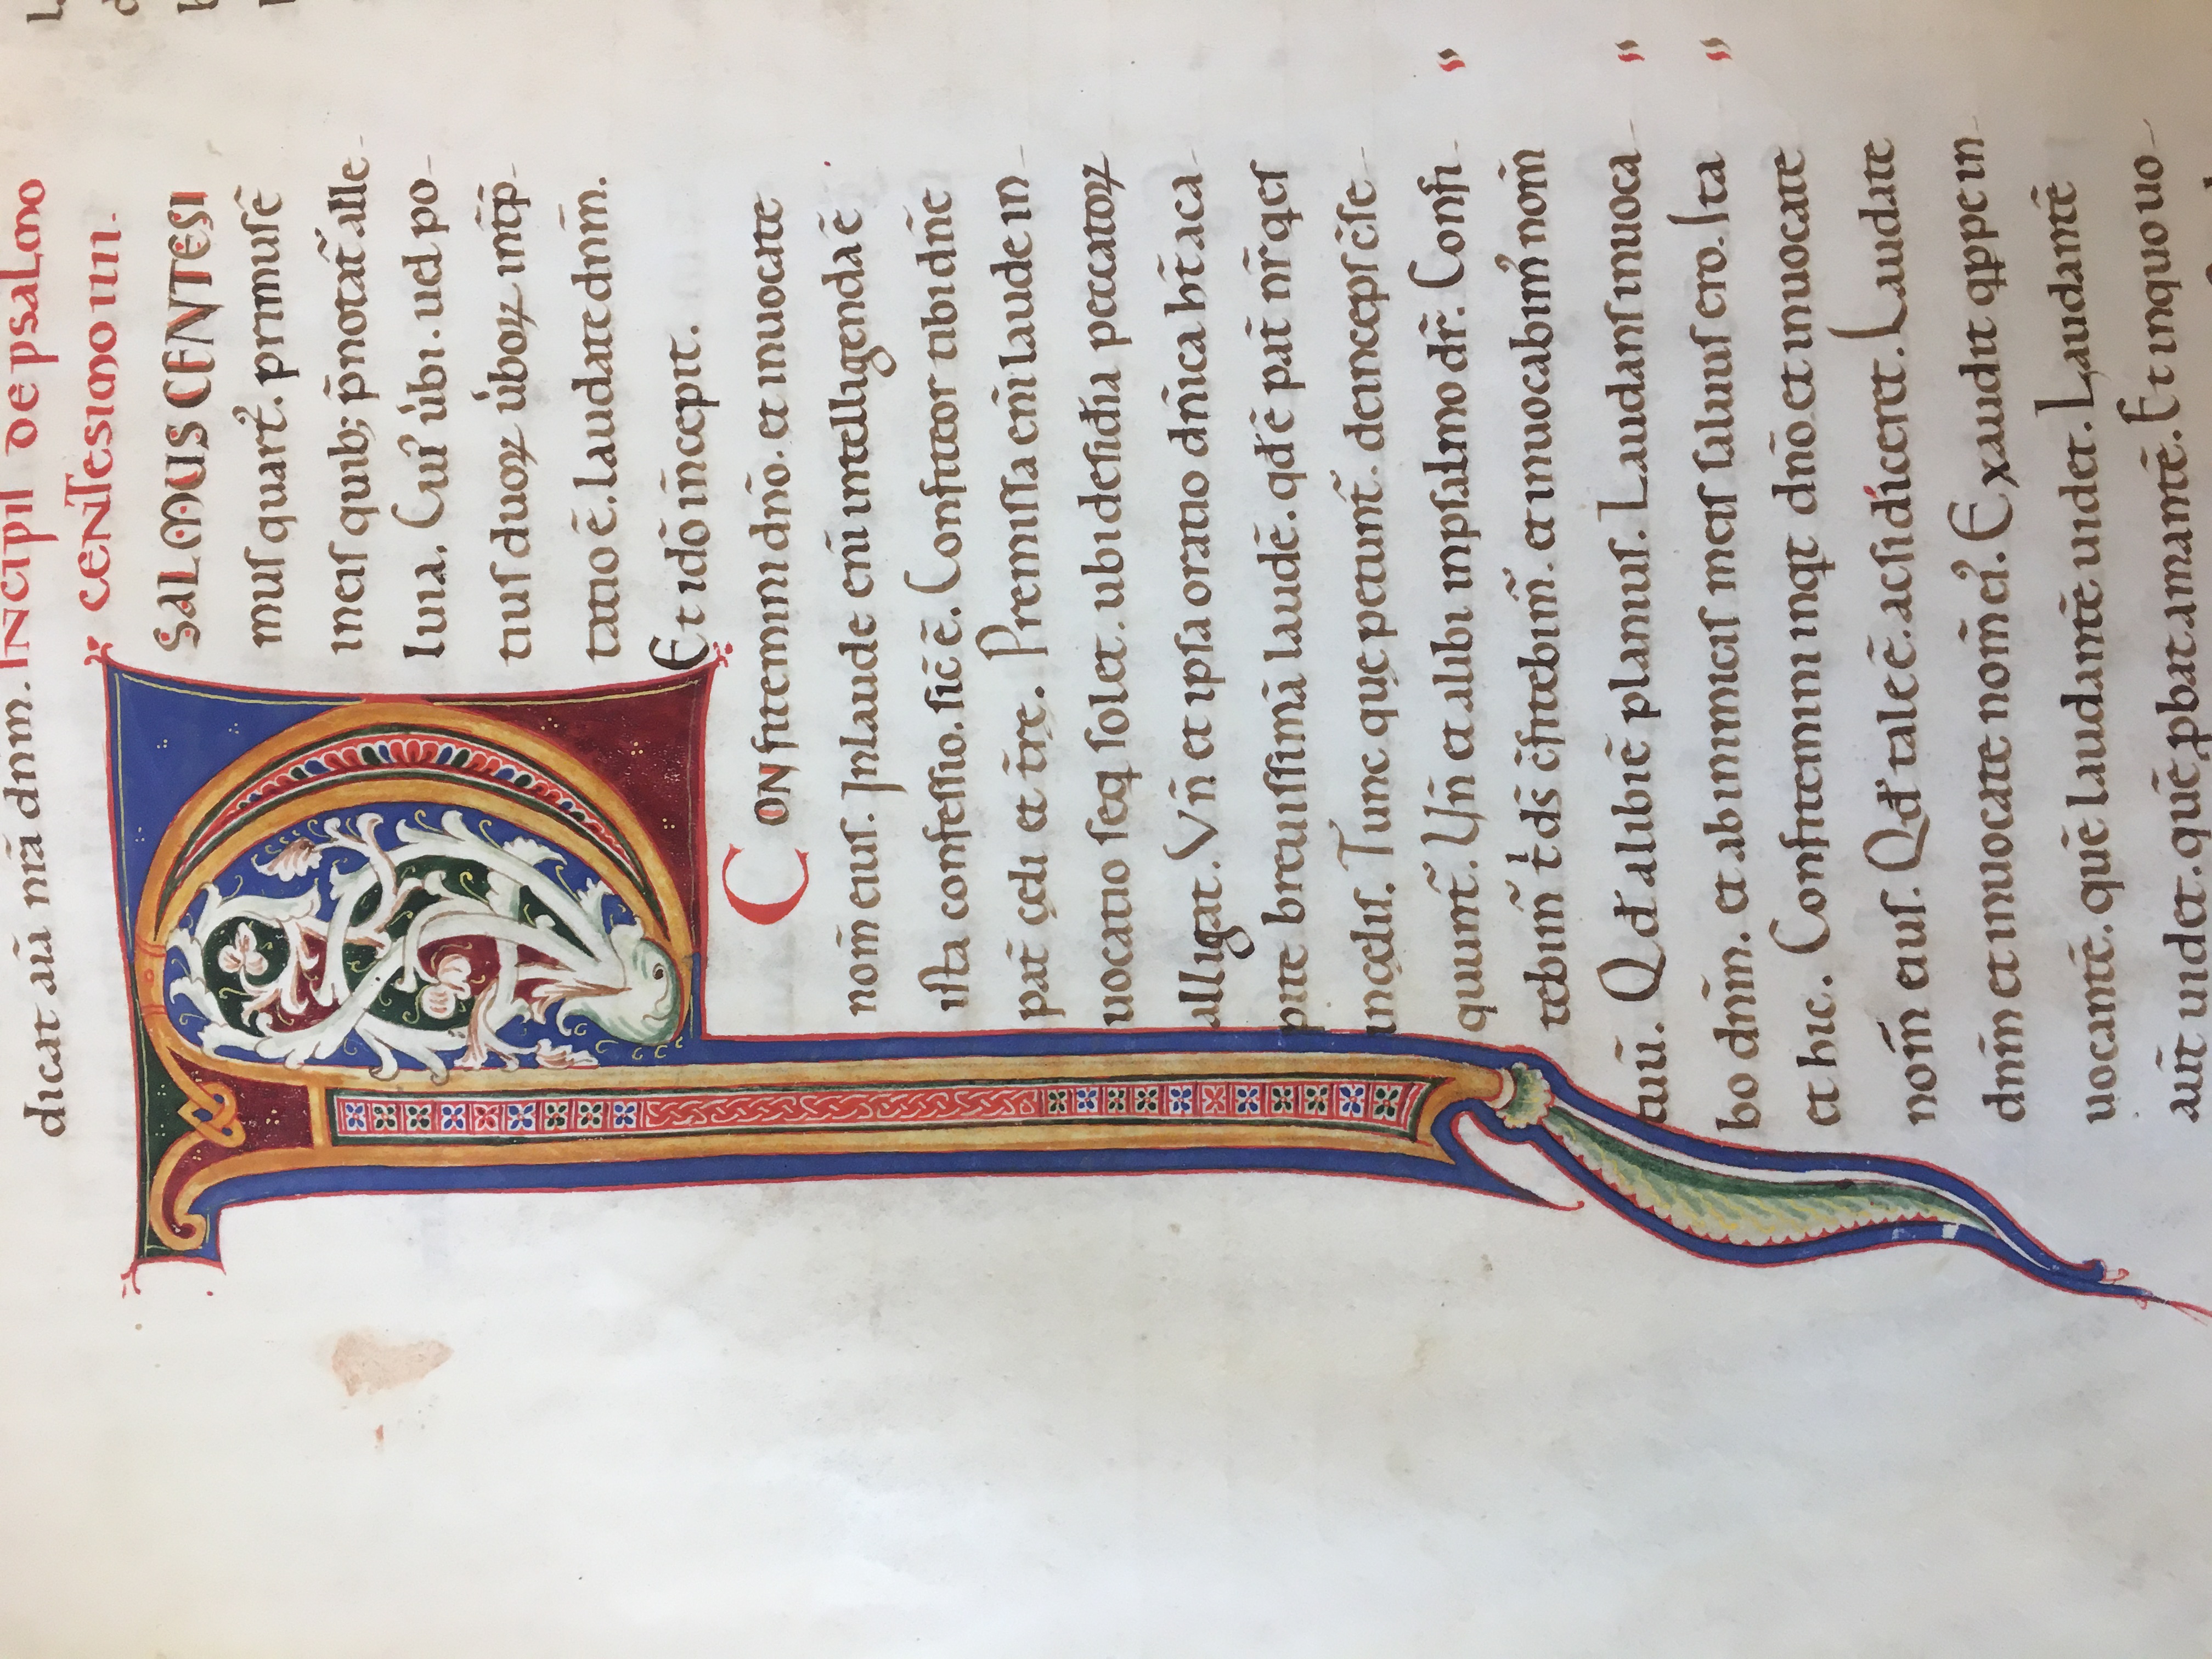 dicat aīa nr̄a dnm̄. INCIPIT DE PSALMO
CENTESIMO IIII.
PSALMUS CENTESI
mus quart᷒. primus ē
in eis quib; p̄notat̄ alle
luiia. Cui᷒ ūbi. uel po
tius duoꝝ ūboꝝ int̄p
tatio ē. laudate dnm̄.
Et idō in̄cepit.
CONfitemini dn̄o. et inuocate
nom̄ eius. In laude eni̅ intelligenda ē
ista confessio. sic̄ ē. Confiteor tibi dn̄e
pat̄ cęli et tr̄e. Premissa eni̅ laude in
uocatio seqꝉ solet. ubi desidia peccatoꝝ
alligat. Vn̄ et ipsa oratio dn̄ica ht̄ a ca
pite breuissimā laudē. qd̄ ē pat̄ nr̄ q es
in cęlis. Tunc quę petunt̄. deinceps ēse
quunt̄. Vn̄ et alibi in psalmo dr̄. Confi
tebim̄ t̄ ds̄ c̄fitebim̄. et inuocabim᷒ nom̄
tuū. Qd̄ alibi ē planius. Laudans inuoca
bo dnm̄. et ab inimicis meis saluus ero. Ita
et hic. Confitemini inqt dn̄o et inuocate
nom̄ eius. Qd̄ tale ē. ac si diceret. Laudate
dnm̄ et inuocate nom̄ ei᷒. Exaudit qppe in
uocantē. quē laudantē uidet. Laudantē
aut̄ uidet. quē ꝓbat amantē. Et in quo uo